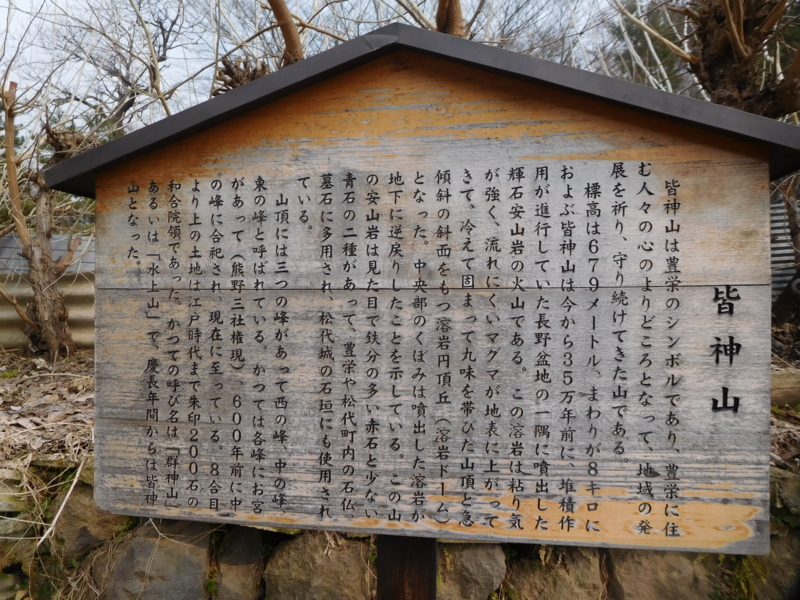 皆神山
皆神山は豊栄のシンボルであり、豊栄に住
む人々の心のよりどころとなって、地域の発
展を祈り、守り続けてきた山である。
標高は679メートル、まわりが8キロに
およぶ皆神山は今から35万年前に、堆積作
用が進行していた長野盆地の一隅に噴出した
輝石安山岩の火山である。この溶岩は粘り気
が強く、流れにくいマグマが地表に上がって
きて、冷えて固まって丸味を帯びた山頂と急
傾斜の斜面をもつ溶岩円頂丘（溶岩ドーム）
となった。中央部のくぼみは噴出した溶岩が
地下に逆戻りしたことを示している。この山
の安山岩は見た目で鉄分の多い赤石と少ない
青石の二種があって、豊栄や松代町内の石仏
墓石に多用され、松代城の石垣にも使用され
ている。
山頂には三つの峰があって西の峰、中の峰、
東の峰と呼ばれている。かつては各峰にお宮
があって（熊野三社権現）600年前に中
の峰に合祀され、現在に至っている。8合目
より上の土地は江戸時代まで朱印200石の
和合院領であった。かつての呼び名は「群神山」
あるいは「水上山」で、慶長年間からは皆神
山となった。